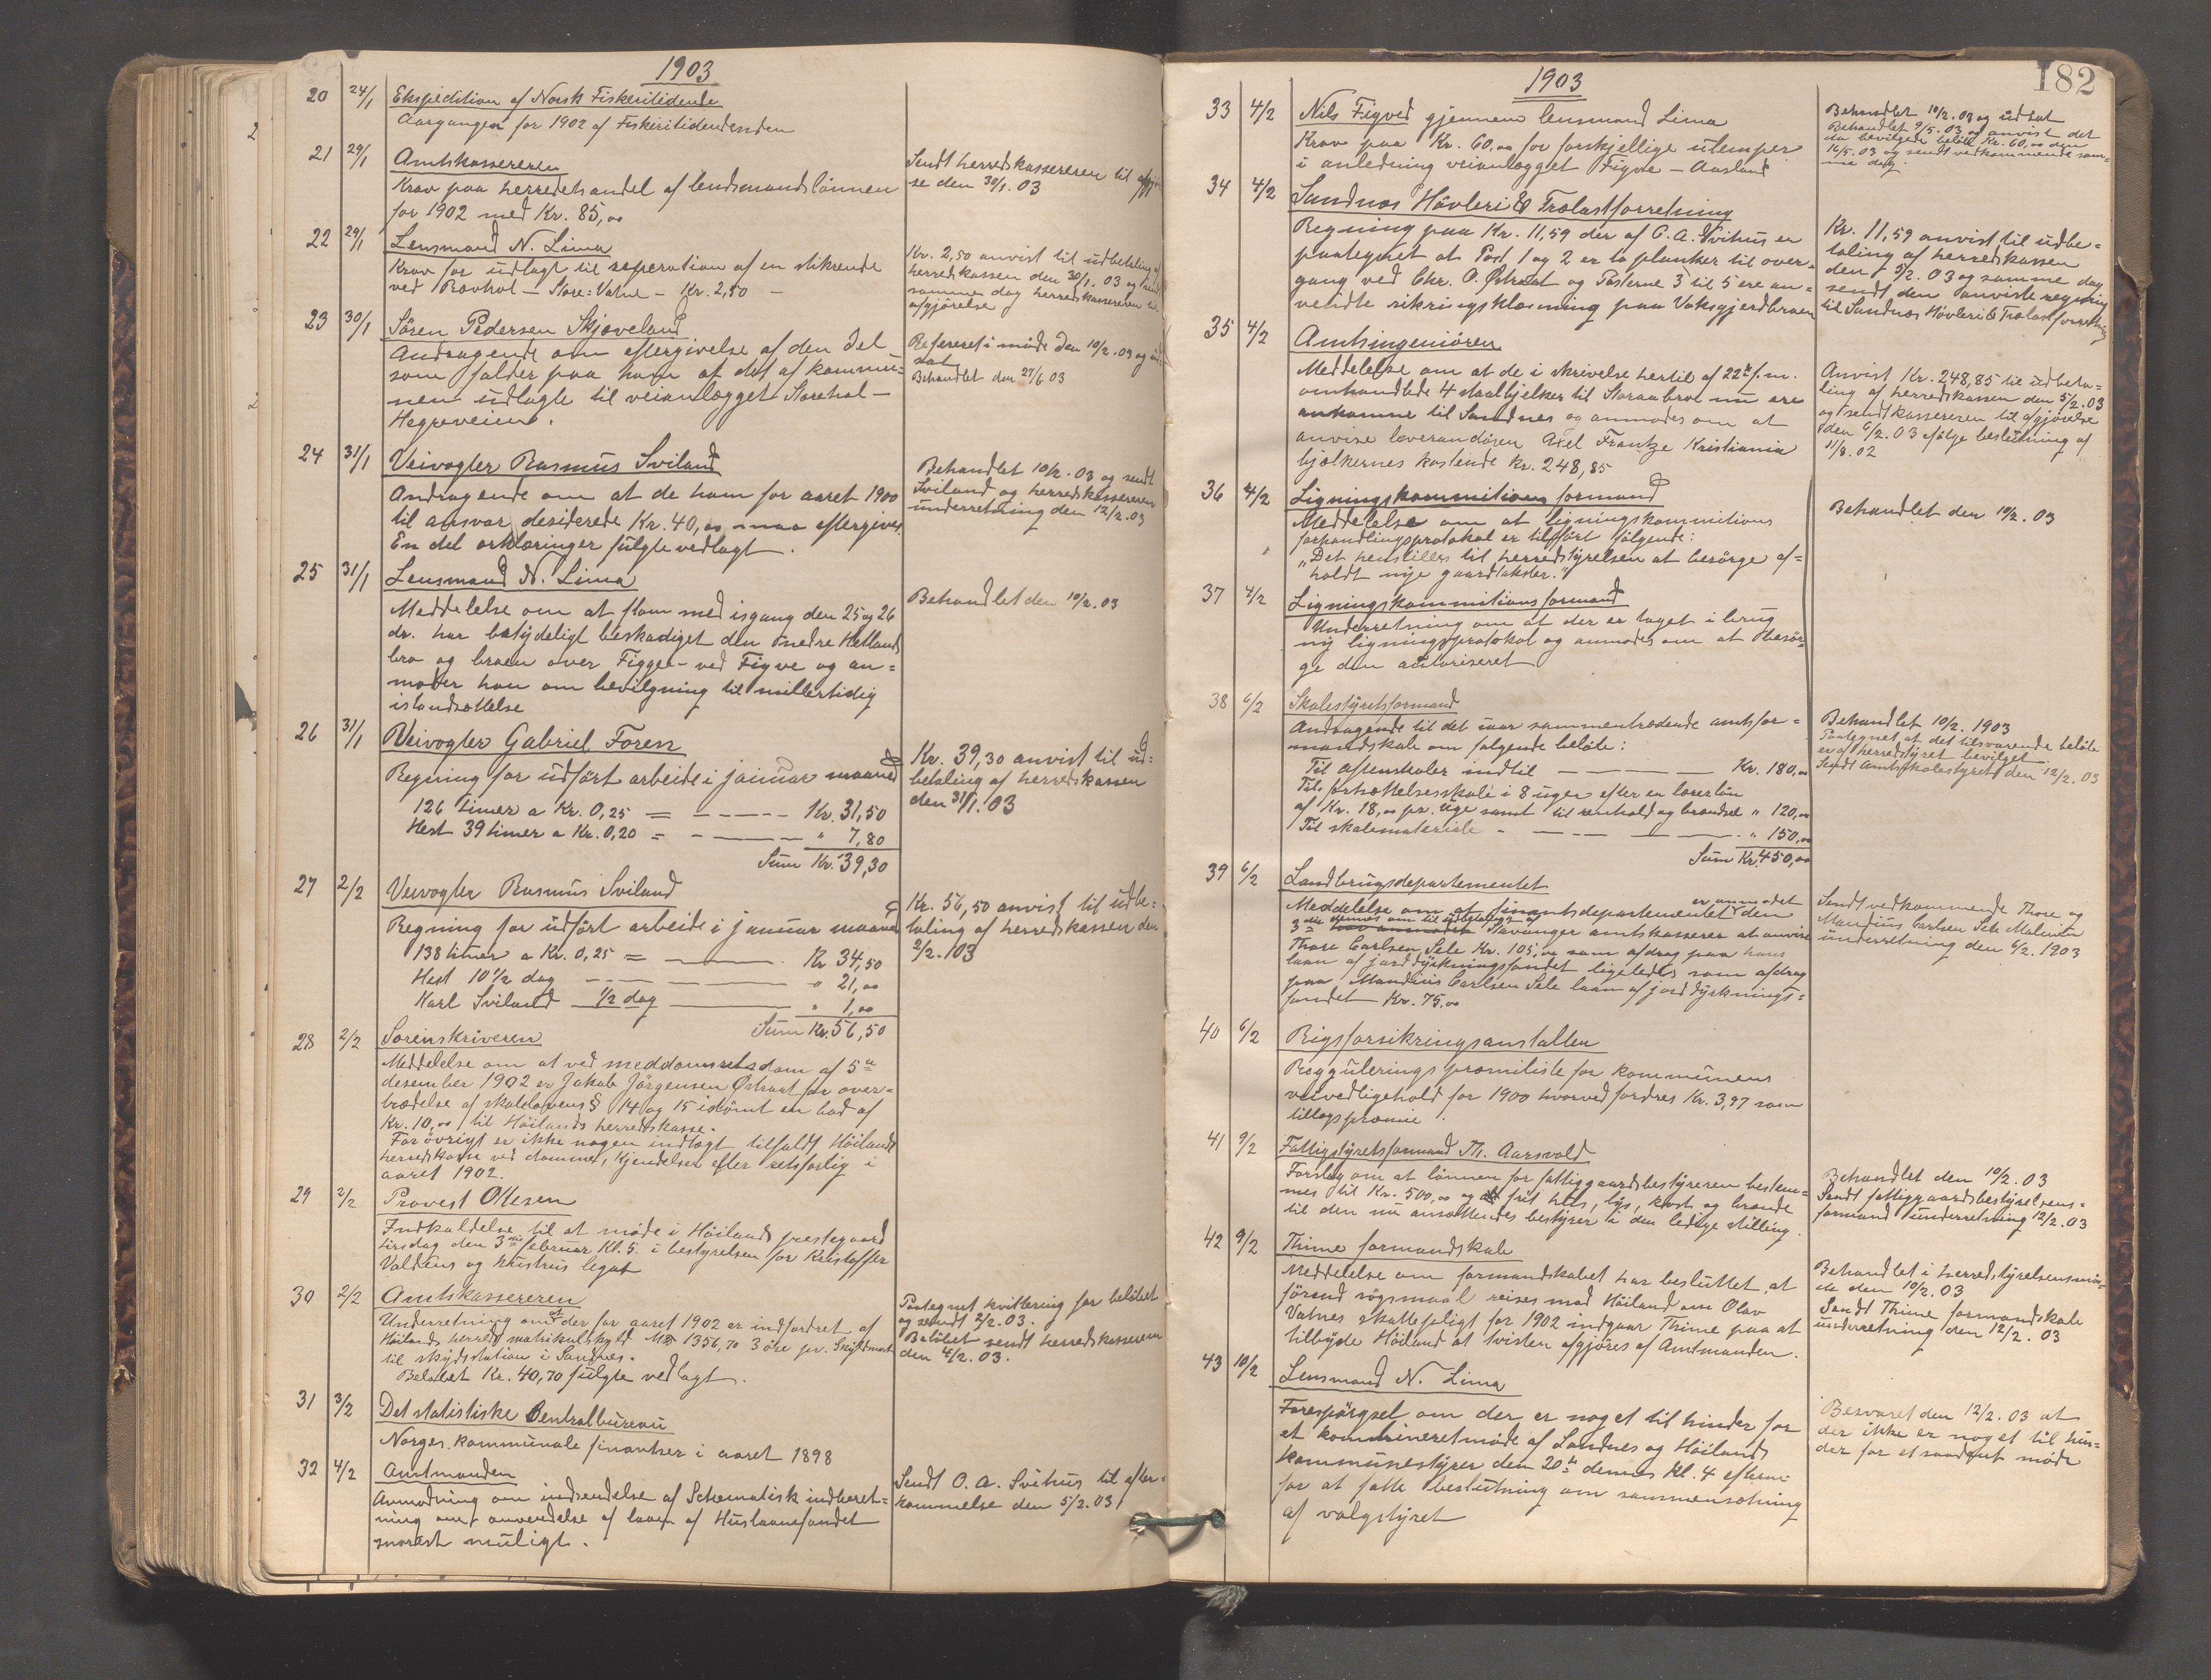 1903
20 24/1 Ekspedition af Norsk Fiskeritidende
Aargangen for 1902 af Fiskeritidendenden
21 29/1 Amtskassereren
Krav paa herredets andel af lendsmandslönnen
for 1902 med Kr. 85,00
Sendt herredskassereren til afgjörel-
se den 30/1. 03
22 29/1 Lensmand N. Lima
Krav for udlagt til reperation af en stikrende
ved Rovhol – Store-Vatne – Kr. 2,50 –
Kr. 2,50 anvist til udbetaling af
herredskassen den 30/1. 03 og sendt
samme dag herredskassereren til
afgjörelse
23 30/1 Sören Pedersen Skjæveland
Andragende om eftergivelse af den del
som falder paa ham af det af kommu-
nen udlagte til veianlægget Storehol –
Hegreveiene.
Refereret i möde den 10/2. 03 og ud-
sat
Behandlet den 27/6 03
24 31/1 Veivogter Rasmus Sviland
Andragende om at de ham for aaret 1900
til ansvar desiderede Kr. 40,00 maa eftergives.
En del erklæringer fulgte vedlagt.
Behandlet 10/2. 03 og sendt
Sviland og herredskassereren
underretning den 12/2. 03
25 31/1 Lensmand N. Lima
Meddelelse om at flom med isgang den 25 og 26
ds. har betydeligt beskadiget den nedre Hetlands
bro og broen over Figgen – ved Figve og an-
moder han om bevilgning til midlertidig
istandsættelse
Behandlet den 10/2. 03
26 31/1 Veivogter Gabriel Foren
Regning for udfört arbeide i januar maaned
126 timer a Kr. 0,25 = – – – – – Kr. 31,50
Hest 39 timer a Kr. 0,20 = – – – – " 7,80
Sum Kr. 39,30
Kr. 39,30 anvist til ud-
betaling af herredskassen
den 31/1. 03
27 2/2 Veivogter Rasmus Sviland
Regning for udfört arbeide i januar maaned
138 timer a Kr. 0,25 = – – – Kr 34,50
Hest 10 1/2 dag – – – – – " 21,00
Karl Sviland 1/2 dag – – – " 1,00
Sum Kr. 56,50
Kr. 56,50 anvist til udbe-
taling af herredskassen den
2/2. 103
28 2/2 Sorenskriveren
Meddelelse om at ved meddomsretsdom af 5te
desember 1902 er Jakob Jörgensen Østraat for over-
trædelse af skolelovens § 14 og 15 idömt en bod af
Kr. 10,00 til Höilands herredskasse.
For övrigt er ikke nogen indtægt tilfaldt Höilands
herredskasse ved domme, kjendelser efter retsforlig i
aaret 1902.
29 2/2 Provest Olsen
Indkaldelse til at möde i Höilands prestegaard
tirsdag den 3die februar Kl. 5. i bestyrelsen for Kristoffer
Valdeus og hustrus legat
30 2/2 Amtskassereren
Underretning om at der for aaret 1902 er indfordret af
Höilands herreds matrikulskyld Mk 1356,70 3 öre pr. Skyldmark
til skydsstation i Sandnes.
Belöbet Kr. 40,70 fulgte vedlagt.
Paategnet kvittering for belöbet
og sendt 2/2. 03.
Belöbet sendt herredskassereren
den 4/2. 03.
31 3/2 Det statistiske Centralbureau
Norges kommunale finantser i aaret 1898
32 4/2 Amtmanden
Anmodning om indsendelse af Schematisk indberet-
ning om anvendelse af laan af Huslaanefondet
snarest muligt.
Sendt O. A. Svihus til efter-
kommelse den 5/2. 03
182
1903
33 4/2 Nils Figved gjennem lensmand Lima
Krav paa Kr. 60,00 for forskjellige ulemper
i anledning veianlægget Figve – Aasland
Behandlet 10/2. 03 og udsat
Behandlet 9/5. 03 og anvist det
da bevilgede belöb Kr. 60,00 den
16/5. 03 og sendt vedkommende sam-
me dag.
34 4/2 Sandnes Hövleri & Trælastforretning
Regning paa Kr. 11,59 der af O. A. Svihus er
paategnet at Post 1 og 2 er to planker til over-
gang ved Chr. O. Østraat og Posterne 3 til 5 ere an-
vendte sikringsklædning paa Vaksgjerdbroen
Kr. 11,59 anvist til udbe-
taling af herredskassen
den 5/2. 03 og samme dag
sendt den anviste regning
til Sandnes Hövleri & Trælastforretning
35 4/2 Amtsingeniören
Meddelelse om at de i skrivelse hertil af 22de f. m.
omhandlede 4 staalbjelker til Storaabro nu ere
ankomne til Sandnes og anmodes om at
anvise leverandören Axel Frantze Kristiania
bjælkernes kostende Kr. 248,85
Anvist Kr. 248,85 til udbeta-
ling af herredskassen den 5/2. 03
og sendt kassereren til afgjörelse
den 6/2. 03 ifölge beslutning af
11/8. 02
36 4/2 Ligningskommitions formand
Meddelelse om at ligningskommitions
forhandlingsprotokol er tilfört fölgende:
„Det henstilles til herredstyrelsen at besörge af-
holdt nye gaardtakster."
Behandlet den 10/2. 03
37 4/2 Ligningskommitions formand
Underretning om at der er taget i brug
ny ligningsprotokol og anmodes om at besör-
ge den autoriseret
38 6/2 Skolestyretsformand
Andragende til det iaar sammentrædende amtsfor-
mandskab om fölgende beløb:
Til aftenskoler indtil – – – – Kr. 180,00
Til fortsættelsesskole i 8 uger efter en lærerlön
af Kr. 18,00 pr. uge samt til renhold og brændsel " 120,00
Til skolemateriale – – – – " 150,00
Sum Kr. 450,00
Behandlet 10/2. 1903
Paategnet at det tilsvarende belöb
er af herredstyret bevilget.
Sendt Amtsskolestyret den 12/2. 03
39 6/2 Landbrugsdepartementet
Meddelelse om at finantsdepartementet den er anmodet
3die Stavanger amtskasserer at anvise
Thore Carlsen Sele Kr. 105,00 som afdrag paa hans
laan af jorddyrkningsfondet ligeledes som afdrag
paa Mandius Carlsen Sele laan af jorddyrknings-
fondet Kr. 75,00
Sendt vedkommende Thore og
Mandius Carlsen Sele Malmin
underretning den 6/2. 1903
40 6/2 Rigsforsikringsanstalten
Reguleringspræmiliste for kommunens
veivedligehold for 1900 hvorved fordres Kr. 3,97 som
tillægspræmie.
41 9/2 Fattigstyretsformand Th. Aarsvold
Forslag om at lönnen for fattiggaardsbestyreren bestem-
mes til Kr. 500,00 og frit hus, lys, kost og brænde
til den nu ansættendes bestyrer i den ledige stilling.
Behandlet den 10/2. 03
Sendt fattiggaardsbestyrelsens-
formand underretning 12/2. 03
42 9/2 Thime formandskab
Meddelelse om formandskabet har besluttet at
förend sögsmaal reises mod Höiland om Olav
Vatnes skattepligt for 1902 indgaar Thime paa at
tilbyde Höiland at tvisten afgjöres af Amtmanden.
Behandlet i herredstyrelsensmö-
de den 10/2. 03
Sendt Thime formandskab
underretning den 12/2. 03
43 10/2 Lensmand N. Lima
Forespörgsel om der er noget til hinder for
et kombineretmöde af Sandnes og Höilands
kommunestyrer den 20de dennes Kl. 4 efterm
for at fatte beslutning om sammensætning
af valgstyret
Besvaret den 12/2. 03 at
der ikke er noget til hin-
der for et saadant möde